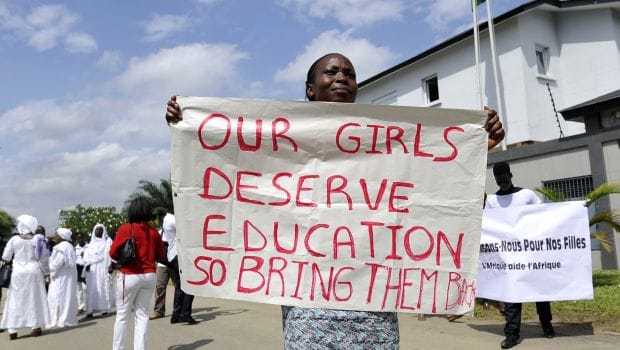 OUR GIRLS
DESERVE
EDUCATION
SO BRING THEM BACK
-Nous Pour Nos Filles
L'Afrique aide l'Afrique